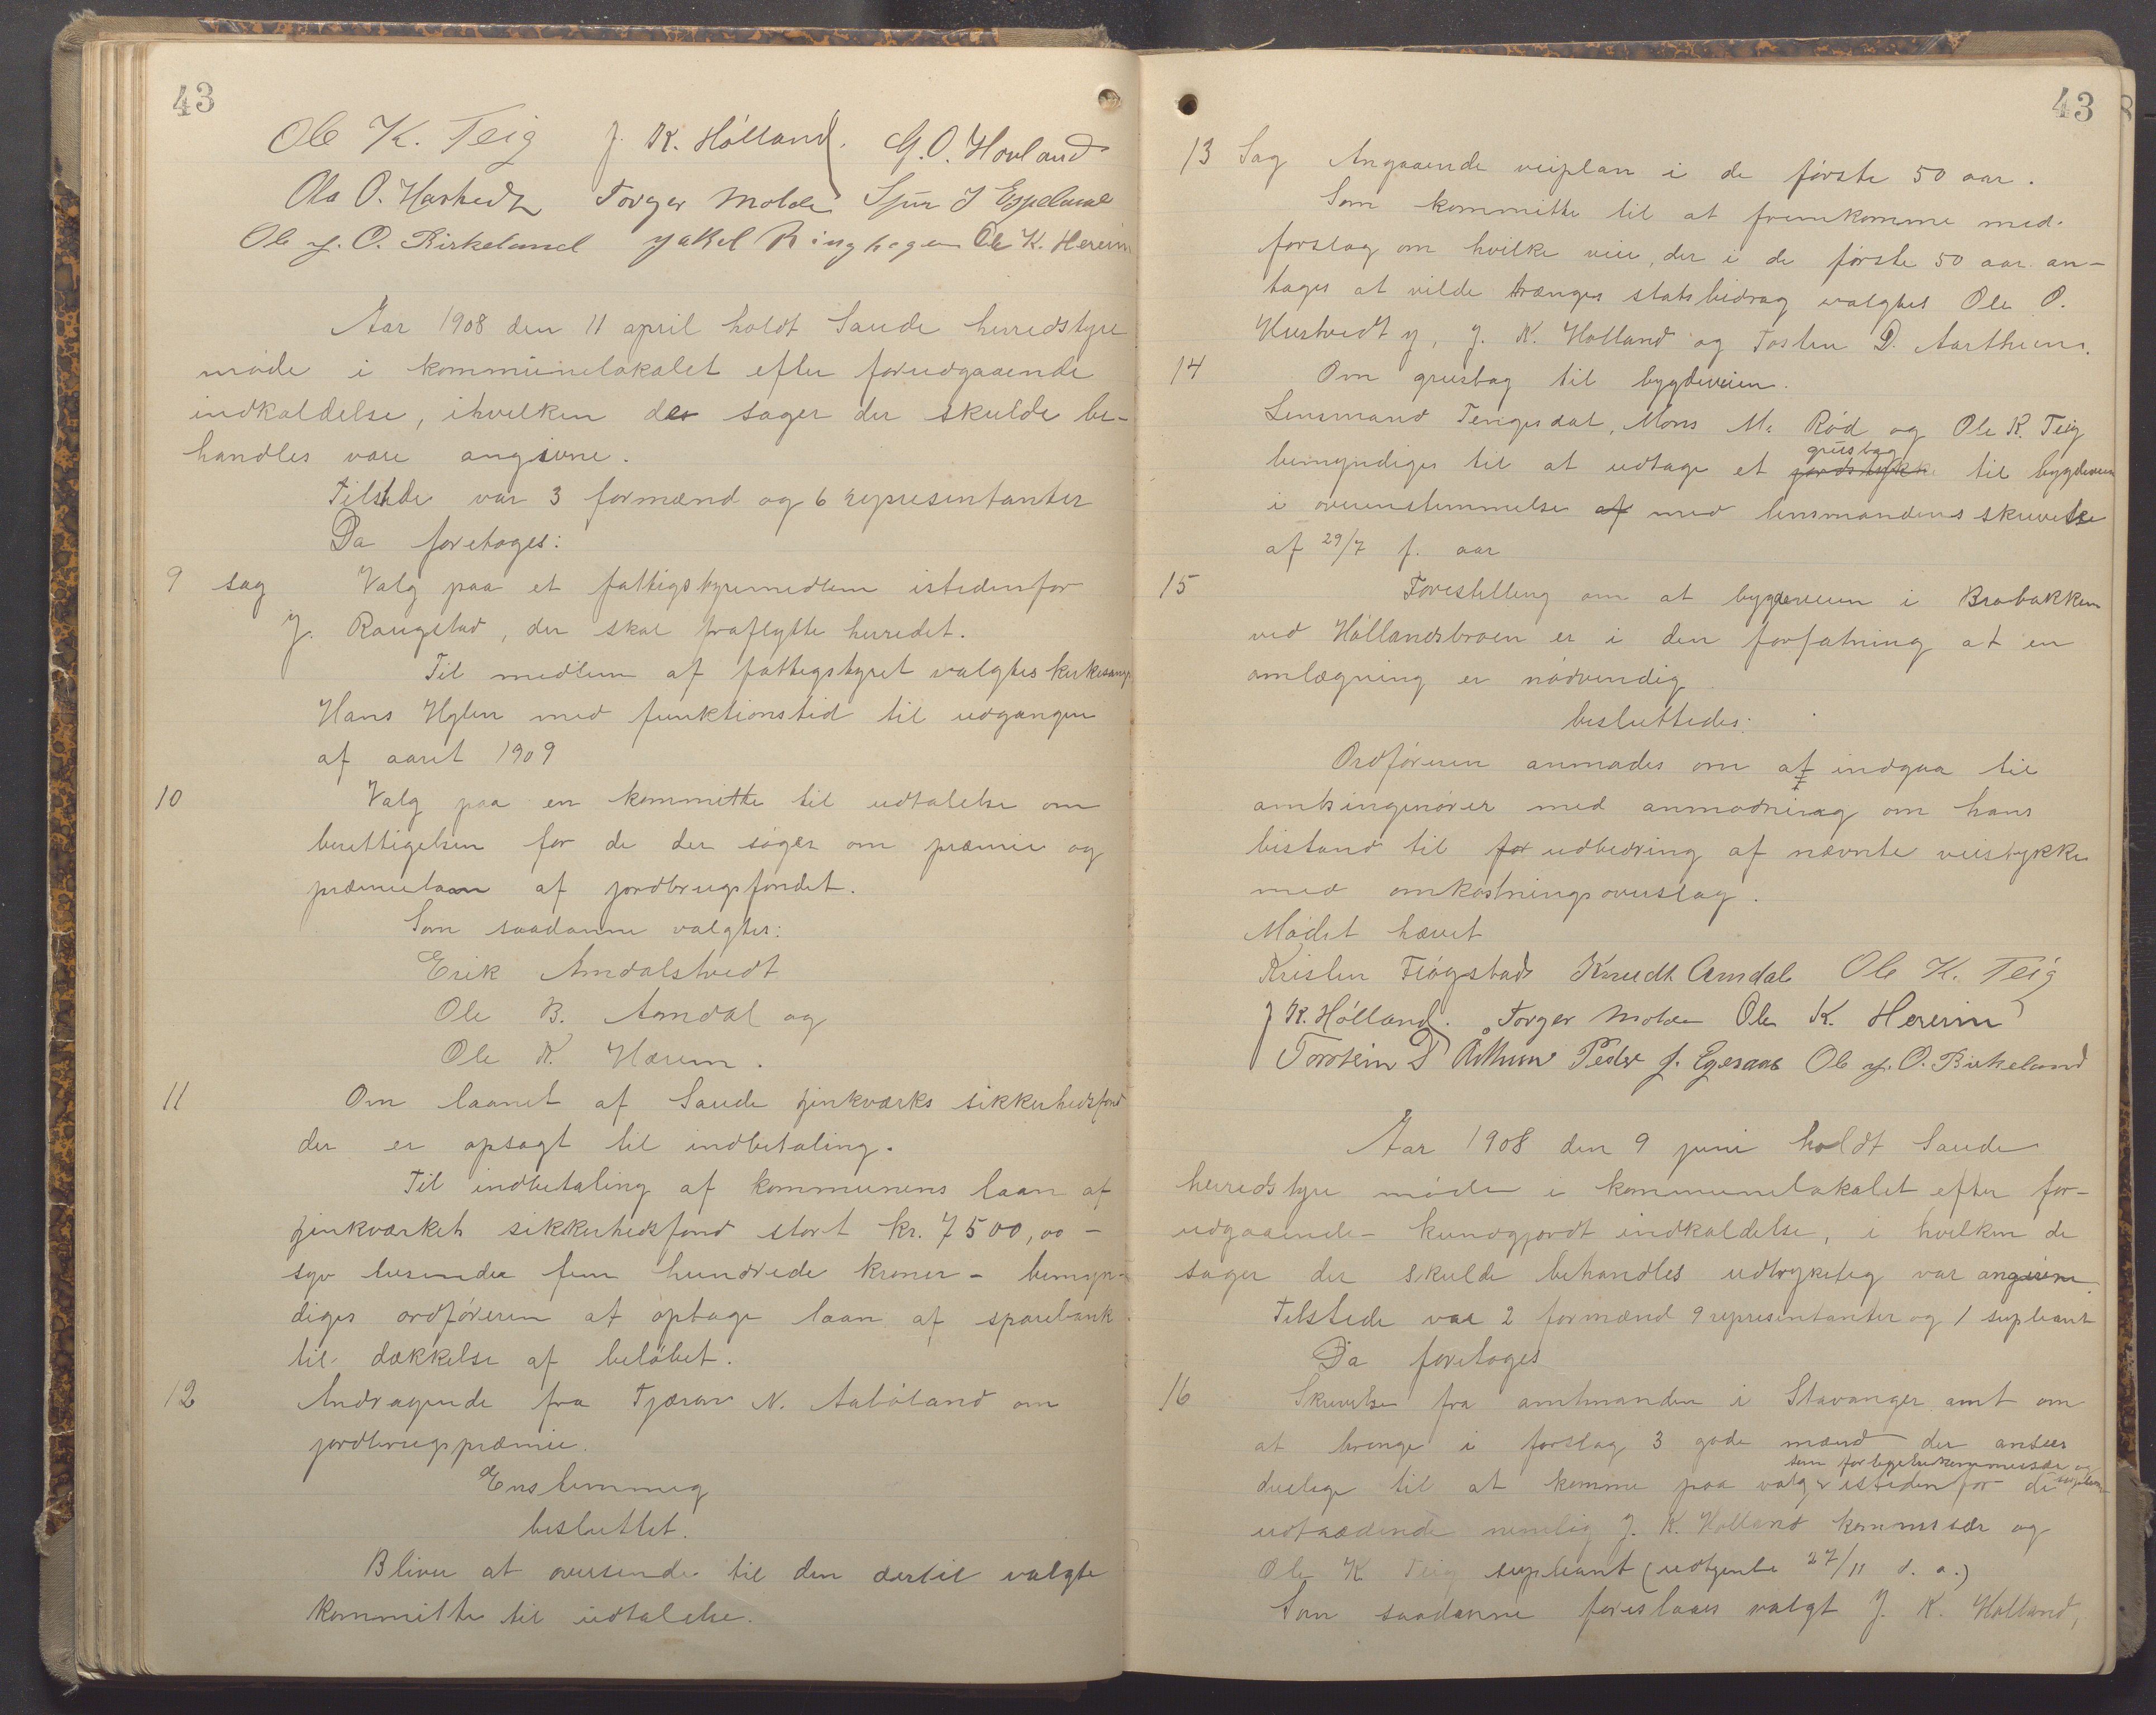 43
Ole K. Teig J. K. Hølland. G. O. Hovland
Ola O. Hustvedt Torger Molde Sjur J Espeland
Ole J. O. Birkeland Jakob Ringhagen Ole K. Hereim
Aar 1908 den 11 april holdt Saude herredstyre
møde i kommunelokalet efter forudgaaende
indkaldelse, ihvilken de sager der skulde be-
handles vare angivne.
Tilstede var 3 formænd og 6 representanter
Da foretoges:
9 sag Valg paa et fattigstyremedlem istedenfor
J. Raugstad, der skal fraflytte herredet.
Til medlem af fattigstyret valgtes kirkesang.
Hans Hylen med funktionstid til udgangen
af aaret 1909
10 Valg paa en kommitte til udtalelse om
berettigelsen for de der søger om præmie og
præmielaan af jordbrugsfondet.
Som saadanne valgtes:
Erik Amdalstvedt
Ole B. Amdal og
Ole K. Hærem.
11 Om laanet af Saude zinkværks sikkerhedsfond
der er opsagt til indbetaling.
Til indbetaling af kommunens laan af
zinkværkets sikkerhedsfond stort kr. 7500,00 -
syv tusinde fem hundrede kroner - bemyn-
diges ordføreren at optage laan af sparebank
til dækkelse af beløbet.
12 Andragende fra Tjæran N. Aabøland om
jordbrugspræmie.
Enstemmig
besluttet.
Bliver at oversende til den dertil valgte
kommitte til udtalelse.
43
13 Sag Angaaende veiplan i de første 50 aar.
Som kommitte til at fremkomme med
forslag om hvilke veie, der i de første 50 aar an-
tages at vilde trænges statsbidrag valgtes Ole O.
Hustvedt y, J. K. Hølland og Tosten D. Aartheim.
14 Om grustag til bygdeveien.
Lensmand Tengesdal, Mons M. Rød og Ole K. Teig
grustag
bemyndiges til at udtage et jordstykke til bygdeveien
i overenstemmelse af med lensmandens skrivelse
af 29/7 f. aar
15 Forestilling om at bygdeveien i Brobakken
ved Høllandsbroen er i den forfatning at en
omlægning er nødvendig.
besluttedes:
Ordføreren anmodes om at indgaa til
amtsingeniøren med anmodning om hans
bistand til for udbedring af nævnte veistykke
med omkostningsoverslag.
Mødet hævet
Kristen Fløgstad Knudt Amdal Ole K. Teig
J K. Hølland. Torger Molde Ole K. Hereim
Torstein D Årthun Peder J. Egeraae Ole J. O. Birkeland
Aar 1908 den 9 juni holdt Saude
herredstyre møde i kommunelokalet efter for-
udgaaende kundgjordt indkaldelse, i hvilken de
sager der skulde behandles udtrykelig var angivne.
Tilstede var 2 formænd 9 representanter og 1 supleant
Da foretoges
16 Skrivelse fra amtmanden i Stavanger amt om
at bringe i forslag 3 gode mænd der ansees
som forligelseskommissær og
duelige til at komme paa valg istedenfor de supleant
udtrædende nemlig J. K. Hølland kommissær og
Ole K Teig supleant (udtjente 27/11 d. a.)
Som saadanne foreslaaes valgt J. K. Hølland,